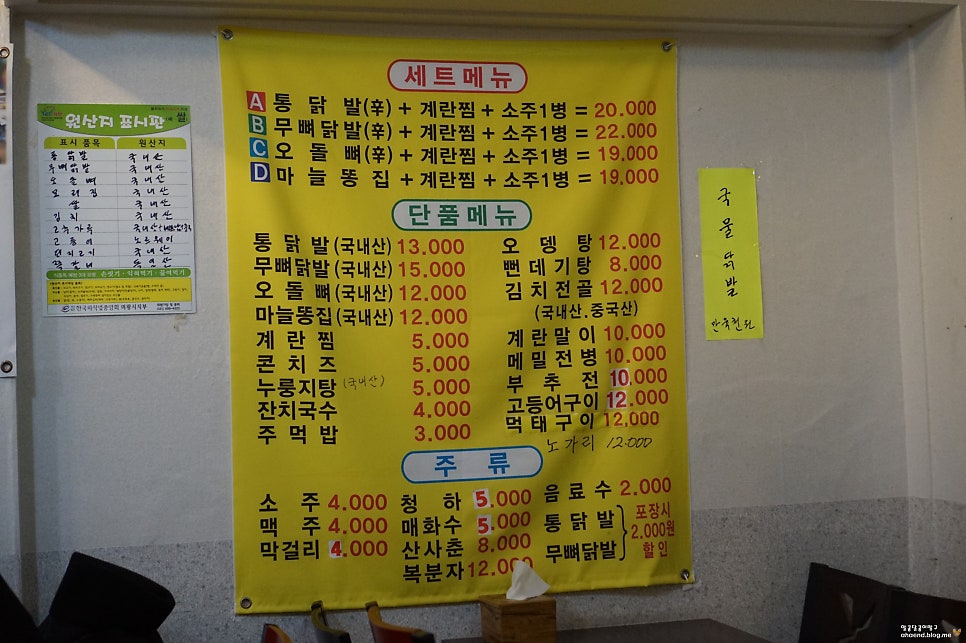 원산지 표시판 쌀
표시 품목 원산지
통닭발 국내산
무뼈닭발 국내산
오돌뼈 국내산
쌀 국내산
김치 국내산
고추가루
고등어 노르웨이
손씻기 · 익혀먹기 · 끓여먹기
세트메뉴
A 통닭발(候) + 계란찜 + 소주1병 = 20.000
B 무뼈닭발(候) + 계란찜 + 소주1병 = 22.000
C 오돌뼈(候) + 계란찜 + 소주1병 = 19.000
D 마늘똥집 + 계란찜 + 소주1병 = 19.000
단품메뉴
통닭발(국내산) 13.000
무뼈닭발(국내산) 15.000
오돌뼈(국내산) 12.000
마늘똥집(국내산) 12.000
계란찜 5.000
콘치즈 5.000
누룽지탕(국내산) 5.000
잔치국수 4.000
주먹밥 3.000
오뎅탕 12.000
뻔데기탕 8.000
김치전골 12.000
(국내산.중국산)
계란말이 10.000
메밀전병 10.000
부추전 10.000
고등어구이 12.000
먹태구이 12,000
노가리 12.000
주류
소주 4.000
맥주 4.000
막걸리 4.000
청하 5.000
매화수 5.000
산사춘 8.000
복분자 12.000
음료수 2.000
통닭발
무뼈닭발
포장시
2.000원
할인
국물닭발
만육천원
ohoend.blog.me